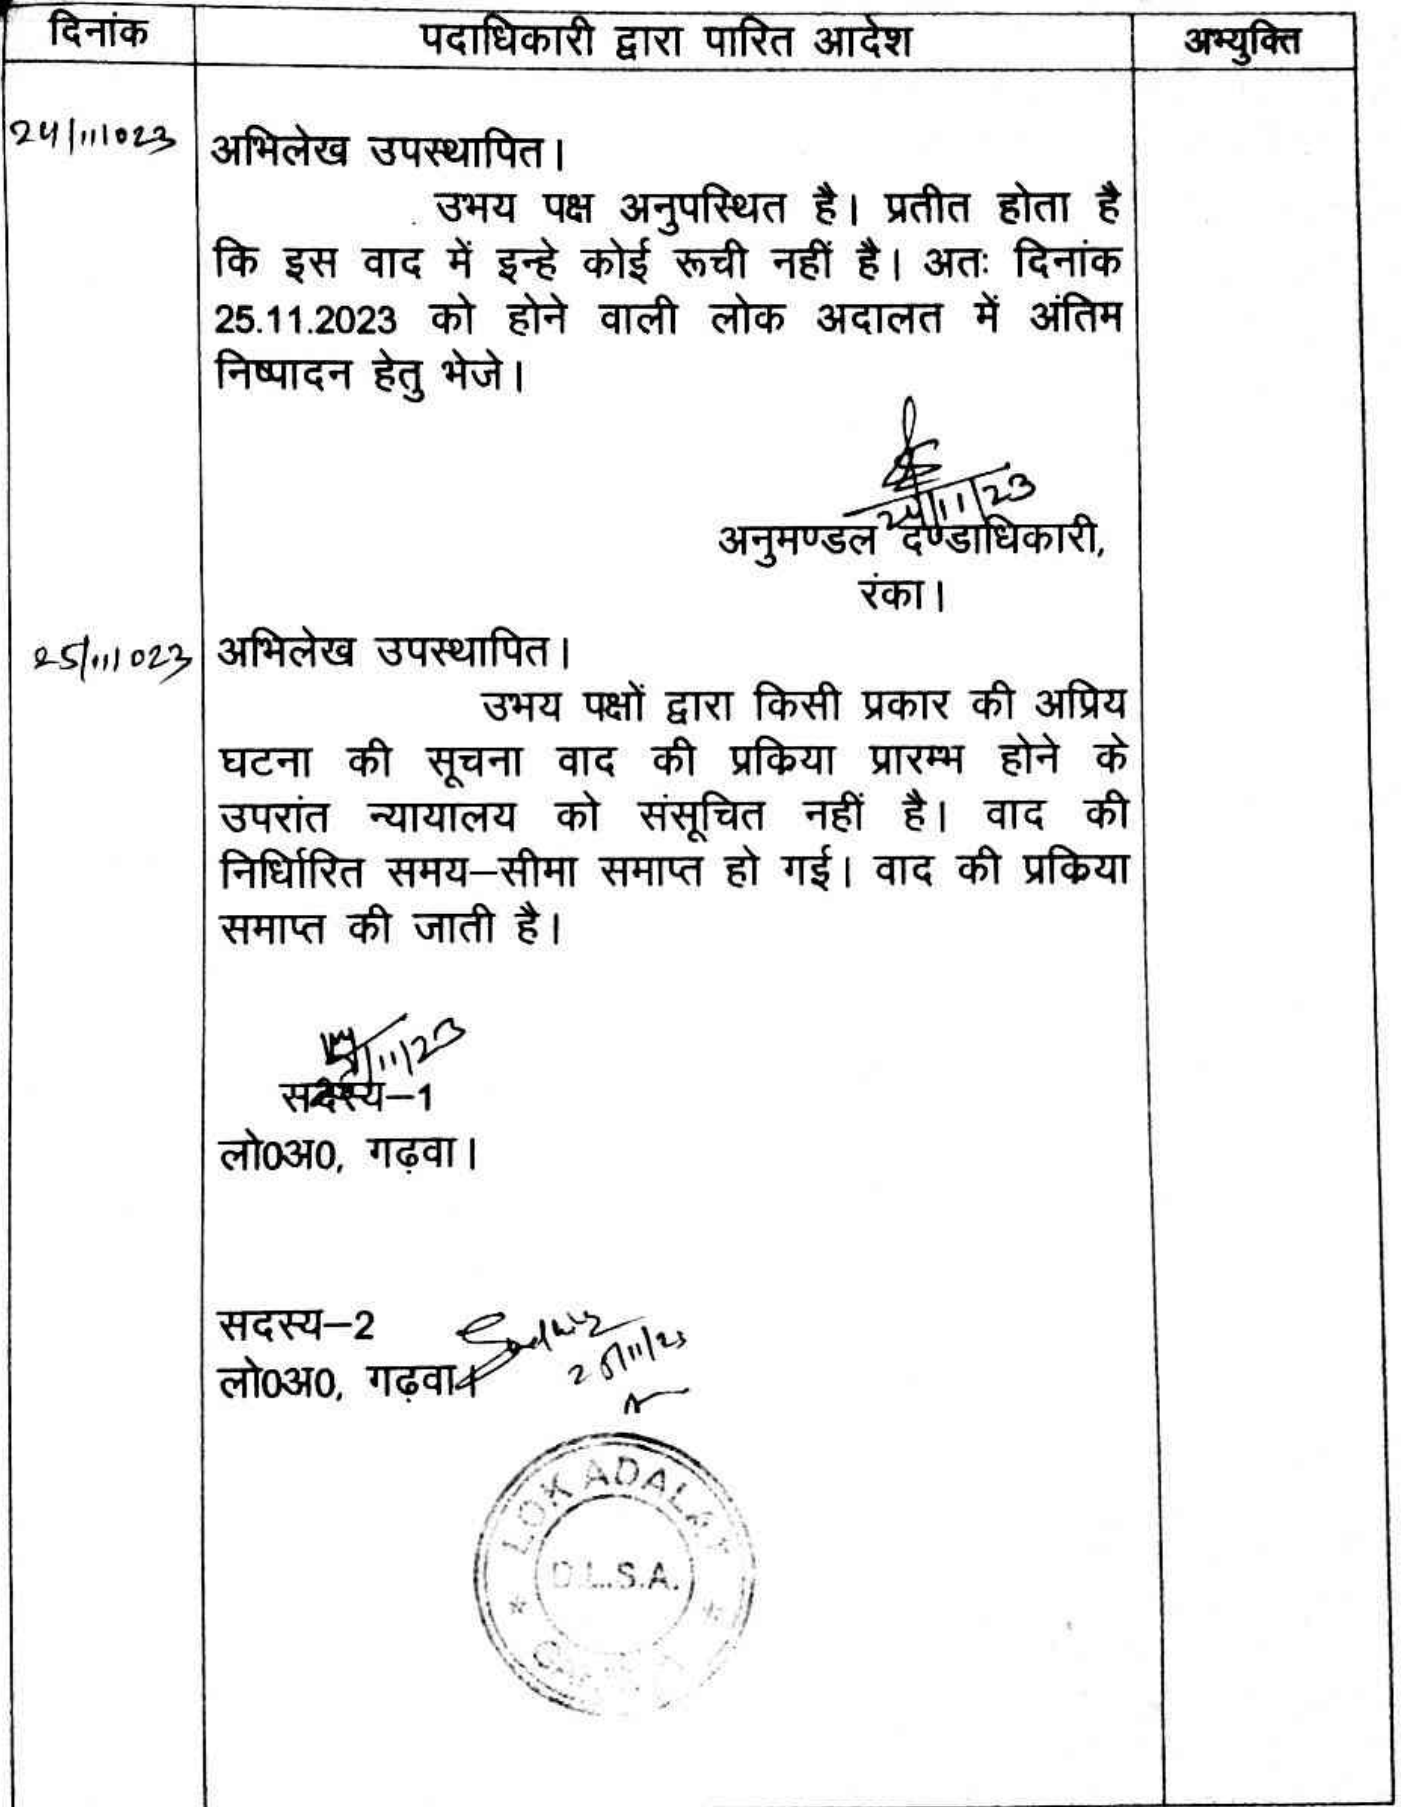 दिनांक पदाधिकारी द्वारा पारित आदेश अभ्युक्ति
24/11/023 अभिलेख उपस्थापित।
उभय पक्ष अनुपस्थित है। प्रतीत होता है
कि इस वाद में इन्हे कोई रूची नहीं है। अतः दिनांक
25.11.2023 को होने वाली लोक अदालत में अंतिम
निष्पादन हेतु भेजे।
24/11/23
अनुमण्डल दण्डाधिकारी,
रंका।
25/11/023 अभिलेख उपस्थापित।
उभय पक्षों द्वारा किसी प्रकार की अप्रिय
घटना की सूचना वाद की प्रकिया प्रारम्भ होने के
उपरांत न्यायालय को संसूचित नहीं है। वाद की
निर्धिारित समय–सीमा समाप्त हो गई। वाद की प्रकिया
समाप्त की जाती है।
25/11/23
सदस्य–1
लो0अ0, गढ़वा।
सदस्य–2
25/11/23
लो0अ0, गढ़वा।
LOK ADALAT
D.L.S.A.